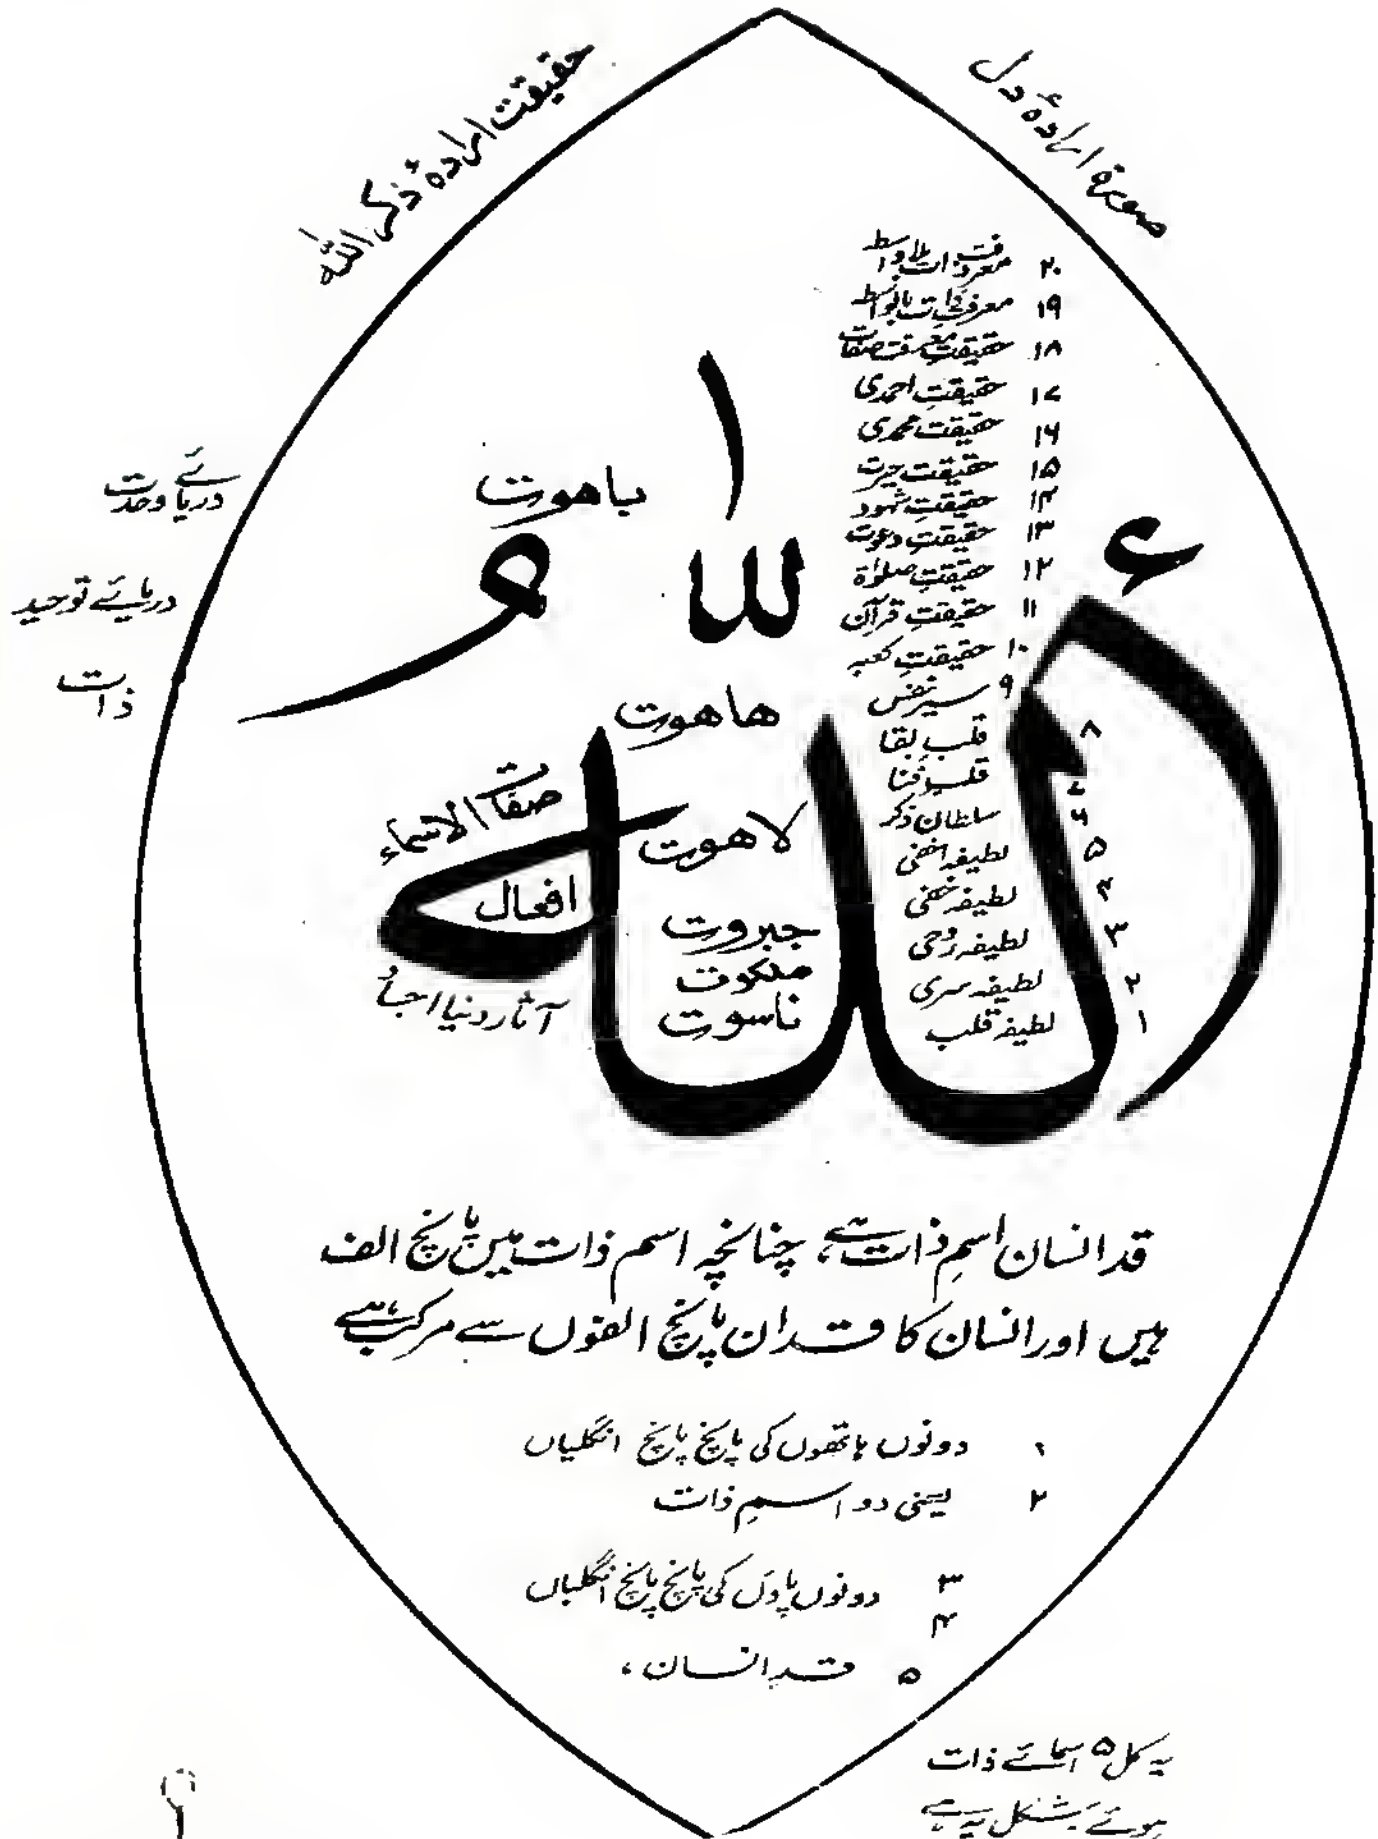 صورة ارادۂ دل
حقیقت ارادۂ ذکر اللہ
۲۰ معرفت ذات بلاواسطہ
۱۹ معرفت ذات بالواسطہ
۱۸ حقیقت معرفت صفات
۱۷ حقیقتِ احمدی
۱۶ حقیقت محمدی
۱۵ حقیقت حیرت
۱۴ حقیقتِ شہود
۱۳ حقیقتِ دعوت
۱۲ حقیقتِ صلوٰة
۱۱ حقیقتِ قرآن
۱۰ حقیقتِ کعبہ
۹ سیر نفس
۸ قلبِ بقا
۷ قلبِ فنا
۶ سلطان ذکر
۵ لطیفہ اخفٰی
۴ لطیفہ خفی
۳ لطیفہ رُوحی
۲ لطیفہ سری
۱ لطیفہ قلب
ء
اللہ
ا
للہ
باھوت
ھاھوت
لاھوت
جبروت
ملکوت
ناسوت
دریائے وحدت
دریائے توحید
ذات
صفات الاسماء
افعال
آثار دنیا
قد انسان اسمِ ذات ہے، چنانچہ اسم ذات میں پانچ الف
ہیں اور انسان کا قد ان پانچ الفوں سے مرکب ہے
۱ دونوں ہاتھوں کی پانچ پانچ انگلیاں
۲ یعنی دو اسمِ ذات
۳ دونوں پاؤں کی پانچ پانچ انگلیاں
۴
۵ قد انسان،
یہ کل ۵ اسمائے ذات
ہوئے شکل یہ ہے